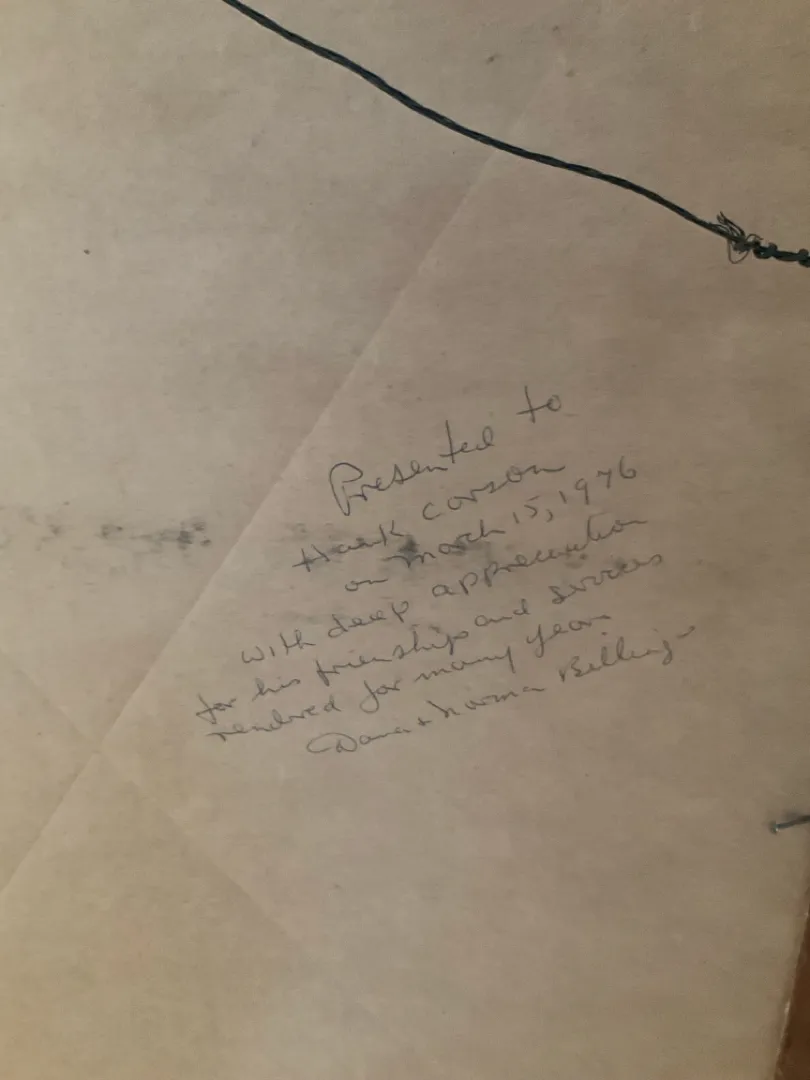 Presented to
Hank Corson
on March 15, 1976
with deep appreciation
for his frienships and services
rendered for many years
Dana + Norma Billings